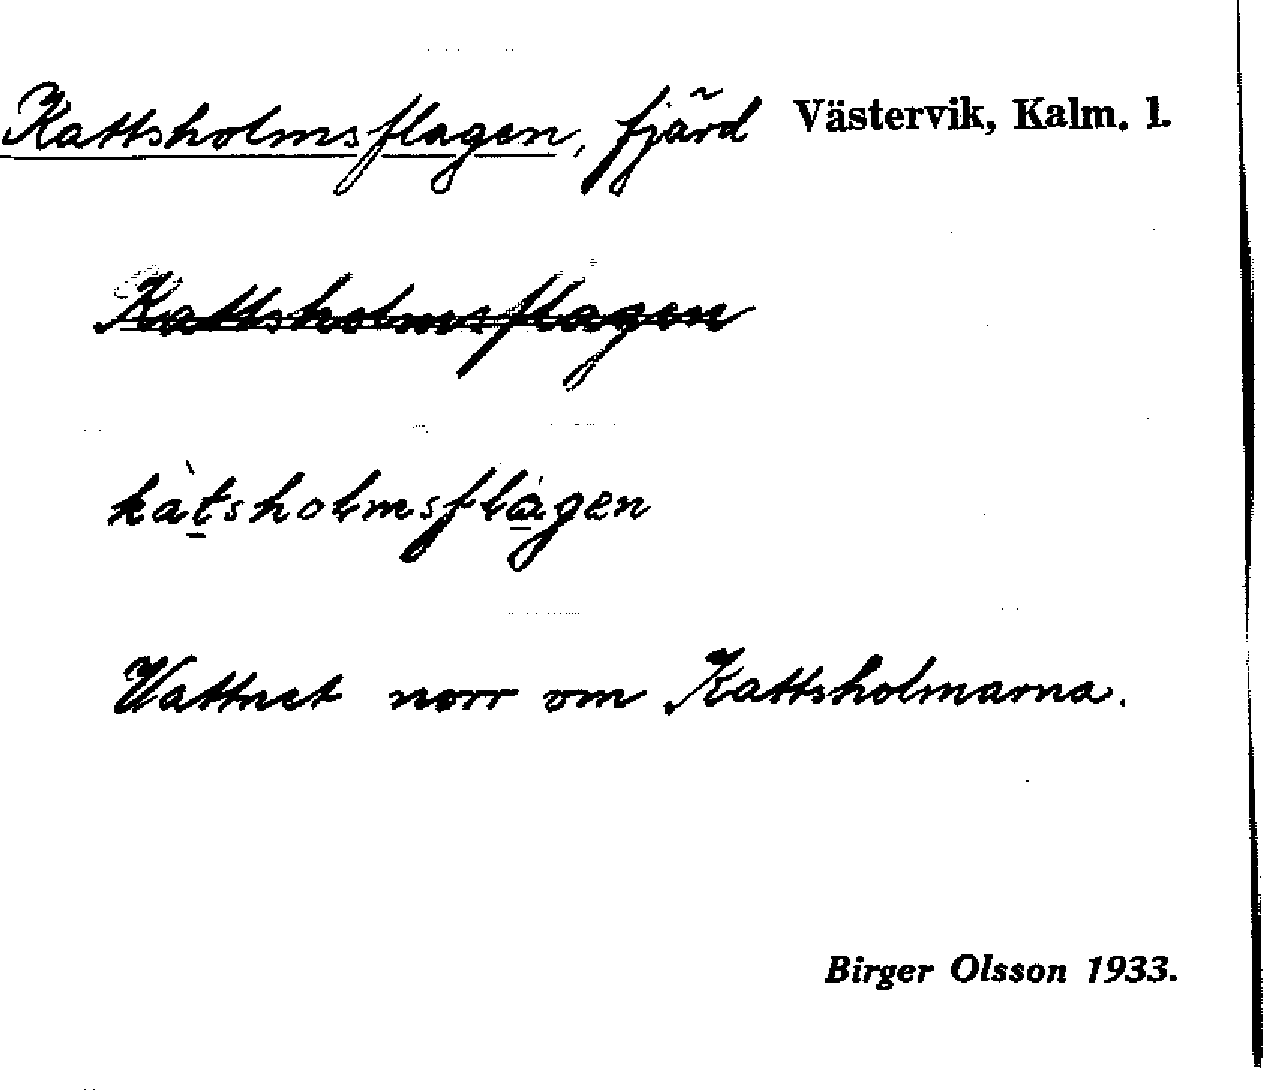 Kattsholmsflagen, fjärd Västervik, Kalm. l.
Kattsholmsflagen
kàt̠sholmsflȧ̠gen
Vattnet norr om Kattsholmarna.
Birger Olsson 1933.